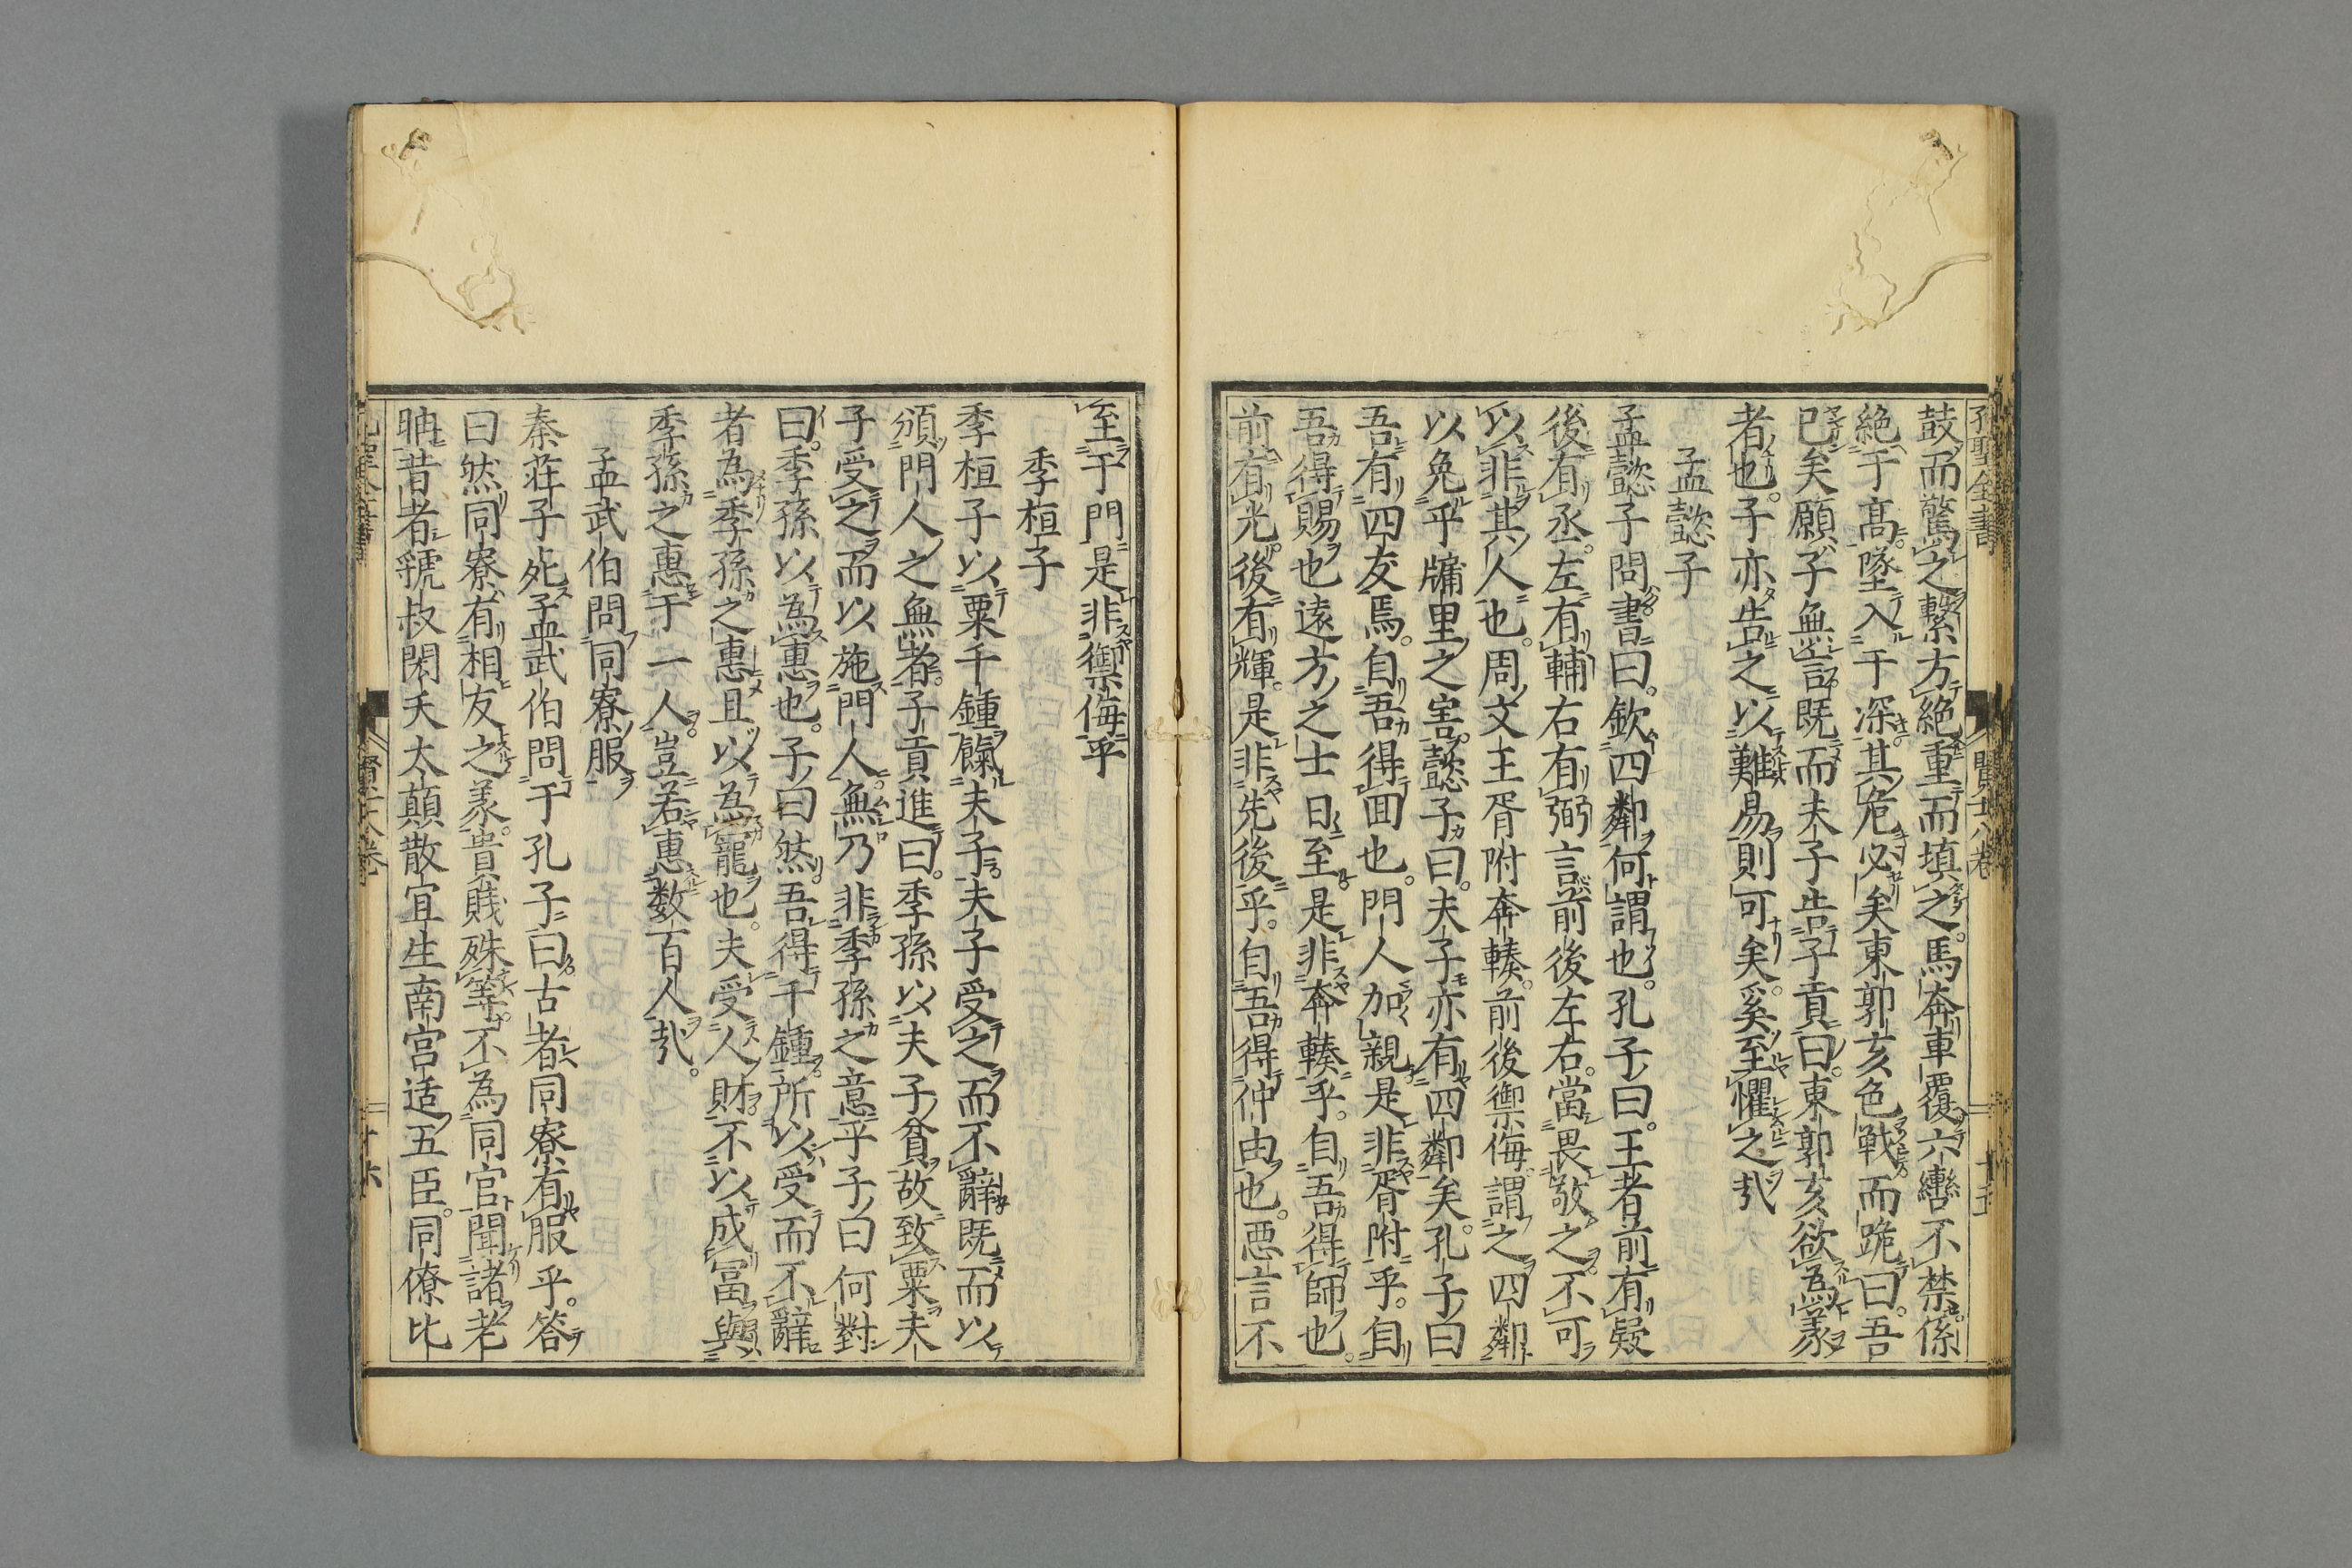 孔聖全書
賢十八卷
十五
鼓而驚之繫方絕重而填之馬奔車覆六轡不禁係
絕于髙墜入于深其危必矣東郭亥色戰而跪曰吾
已矣願子無言既而夫子告子貢曰東郭亥欲為義
者也子亦告之以難易則可矣奚至懼之㢤
孟懿子
孟懿子問書曰欽四鄰何謂也孔子曰王者前有疑
後有丞左有輔右有弼言前後左右當畏敬之不可
以非其人也周文王胥附奔輳前後禦侮謂之四鄰
以免乎牖里之害懿子曰夫子亦有四鄰矣孔子曰
吾有四友焉自吾得囬也門人加親是非胥附乎自
吾得賜也遠方之士日至是非奔輳乎自吾得師也
前有光後有輝是非先後乎自吾得仲由也惡言不
至于門是非禦侮乎
季桓子
季桓子以粟千鍾餼夫子夫子受之而不辭既而以
頒門人之無者子貢進曰季孫以夫子貧故致粟夫
子受之而以施門人無乃非季孫之意乎子曰何對
曰季孫以為惠也子曰然吾得千鍾所以受而不辭
者為季孫之惠且以為寵也夫受人財不以成冨與
季孫之惠于一人豈若惠数百人㢤
孟武伯問同寮服
秦荘子死孟武伯問于孔子曰古者同寮有服乎答
曰然同寮有相友之義貴賤殊等不為同官聞諸老
聃昔者虢叔閎夭太顛散宜生南宮适五臣同僚比